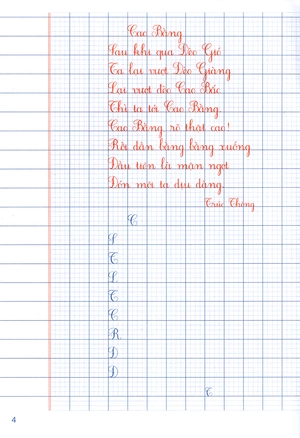 Cao Bằng
Sau khi qua Đèo Gió
Ta lại vượt Đèo Giàng
Lại vượt đèo Cao Bắc
Thì ta tới Cao Bằng.
Cao Bằng rõ thật cao!
Rồi dần bằng bằng xuống
Đầu tiên là mận ngọt
Đón môi ta dịu dàng.
Trúc Thông
C
S
T
L
T
C
R
Đ
Đ
T
4